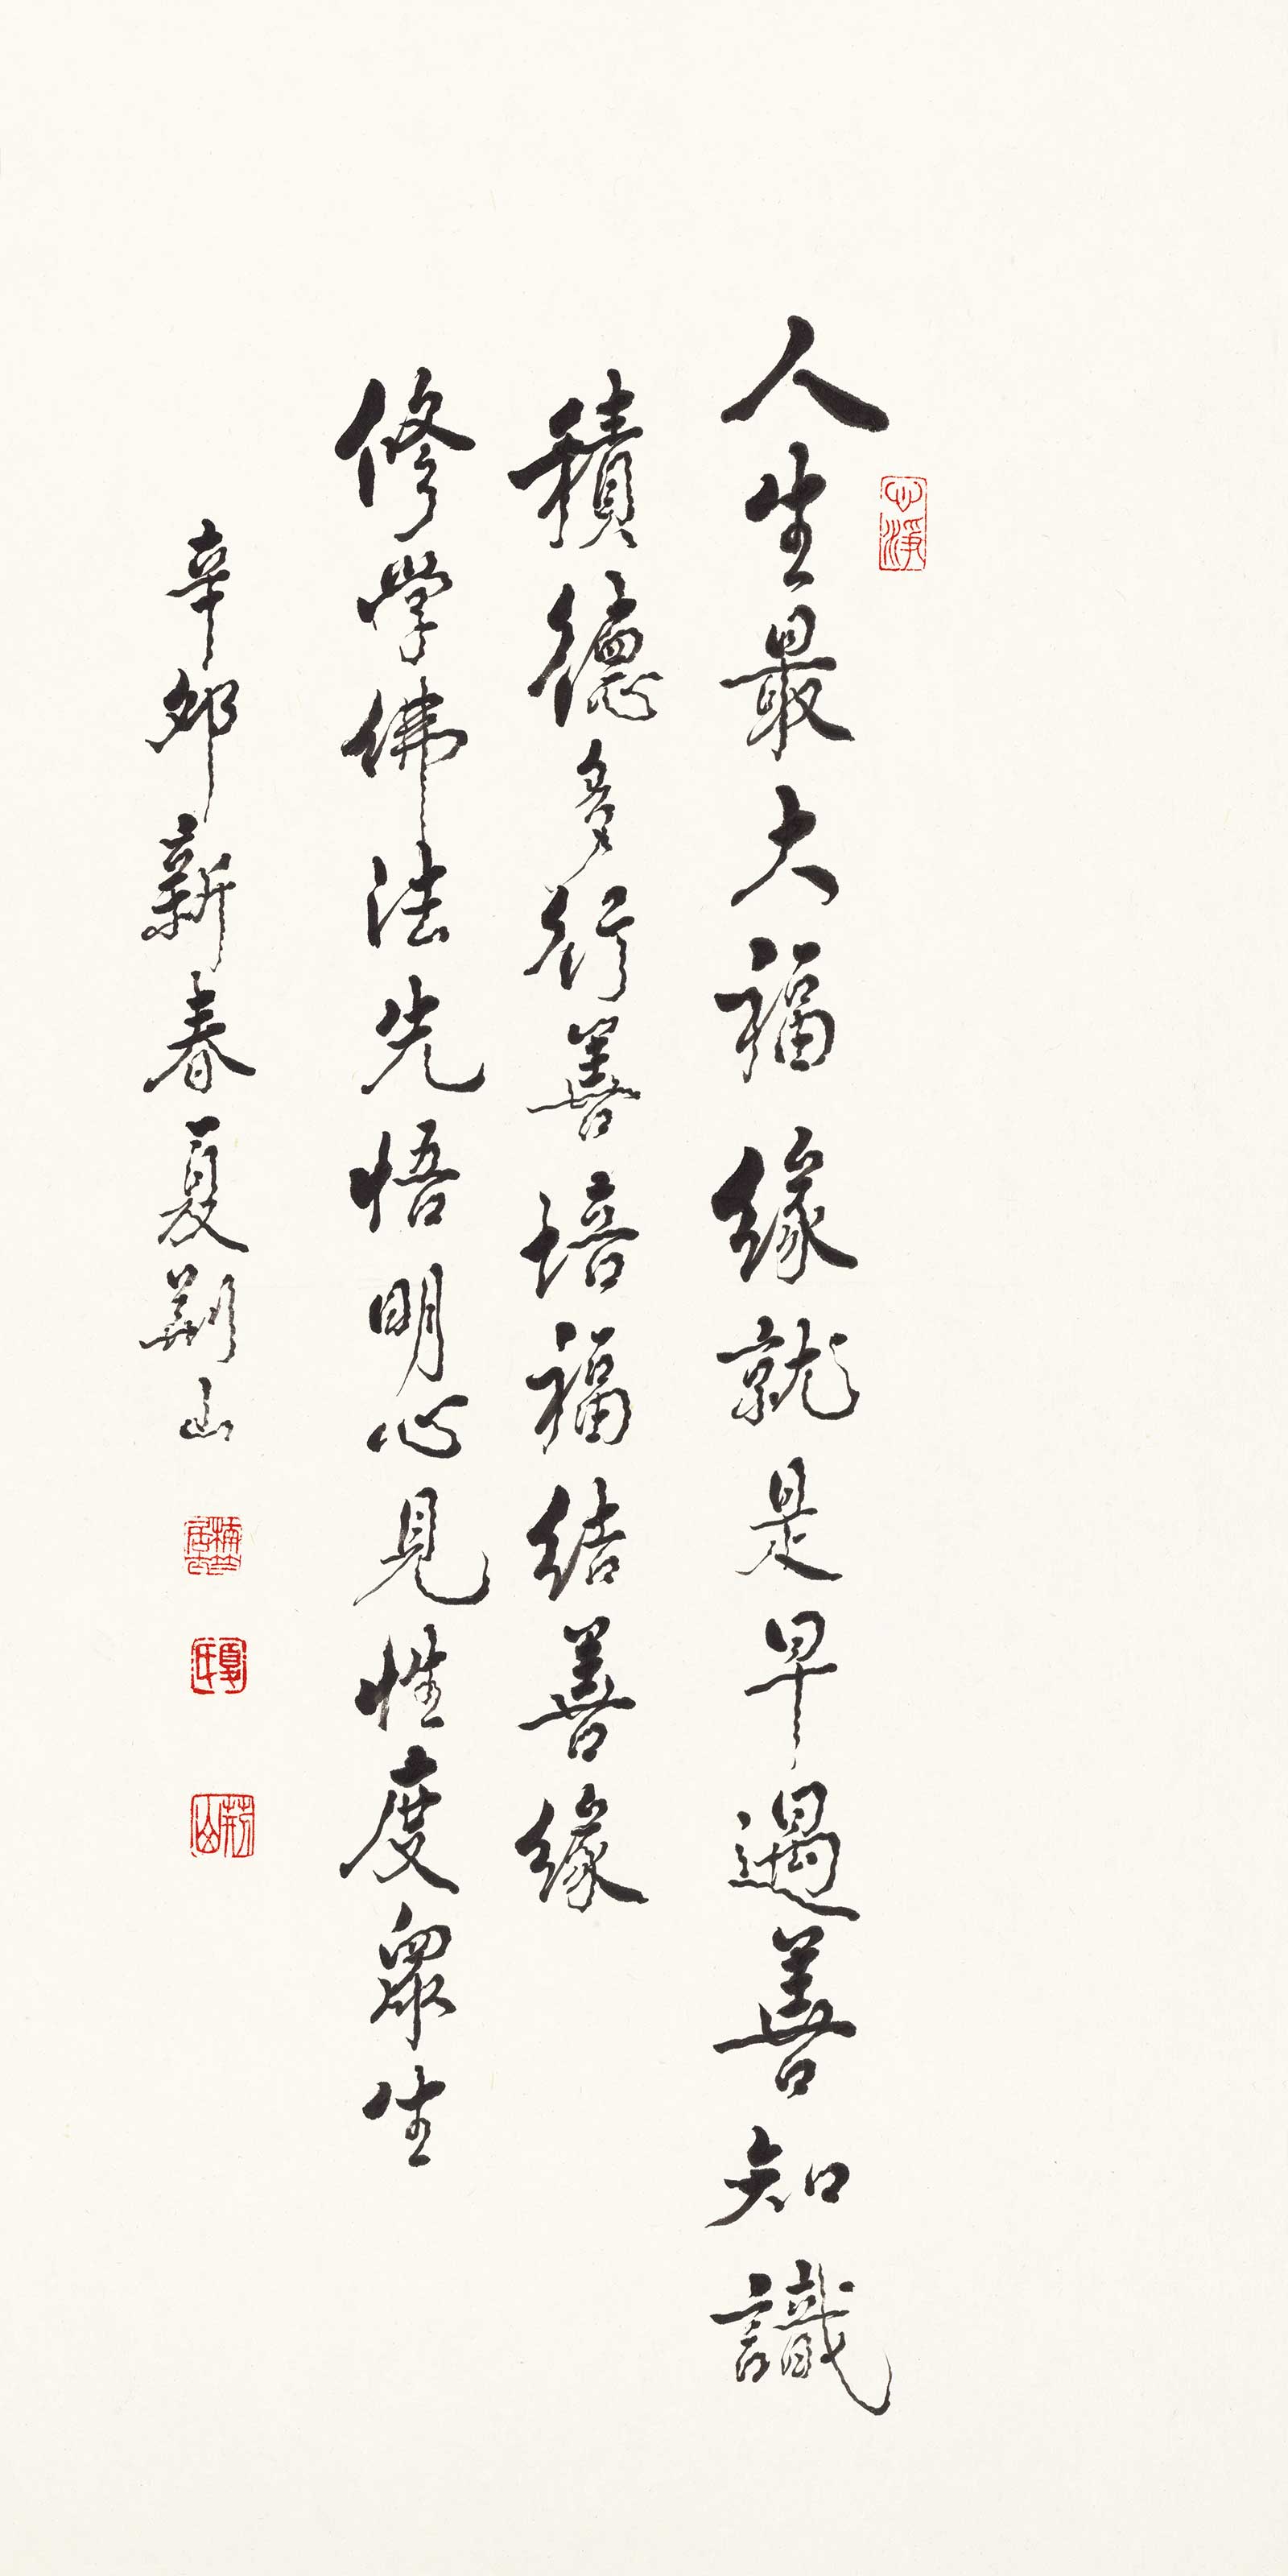 人生最大福緣就是早遇善知識
積德多行善培福結善緣
修學佛法先悟明心見性度眾生
辛卯新春夏荊山
心淨
夏氏
荊山